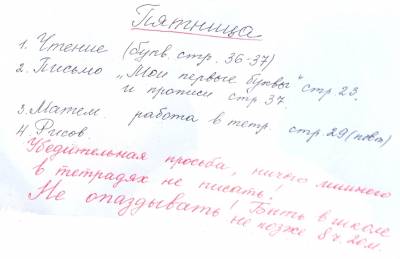 Пятница
1. Чтение (букв. стр. 36-37)
2. Письмо „Мои первые буквы" стр. 23.
и прописи стр 37.
3. Матем. работа в тетр. стр. 29 (повт)
4. Рисов.
Убедительная просьба, ничего лишнего
в тетрадях не писать!
Не опаздывать! Быть в школе
не позже 8 ч. 20 м.